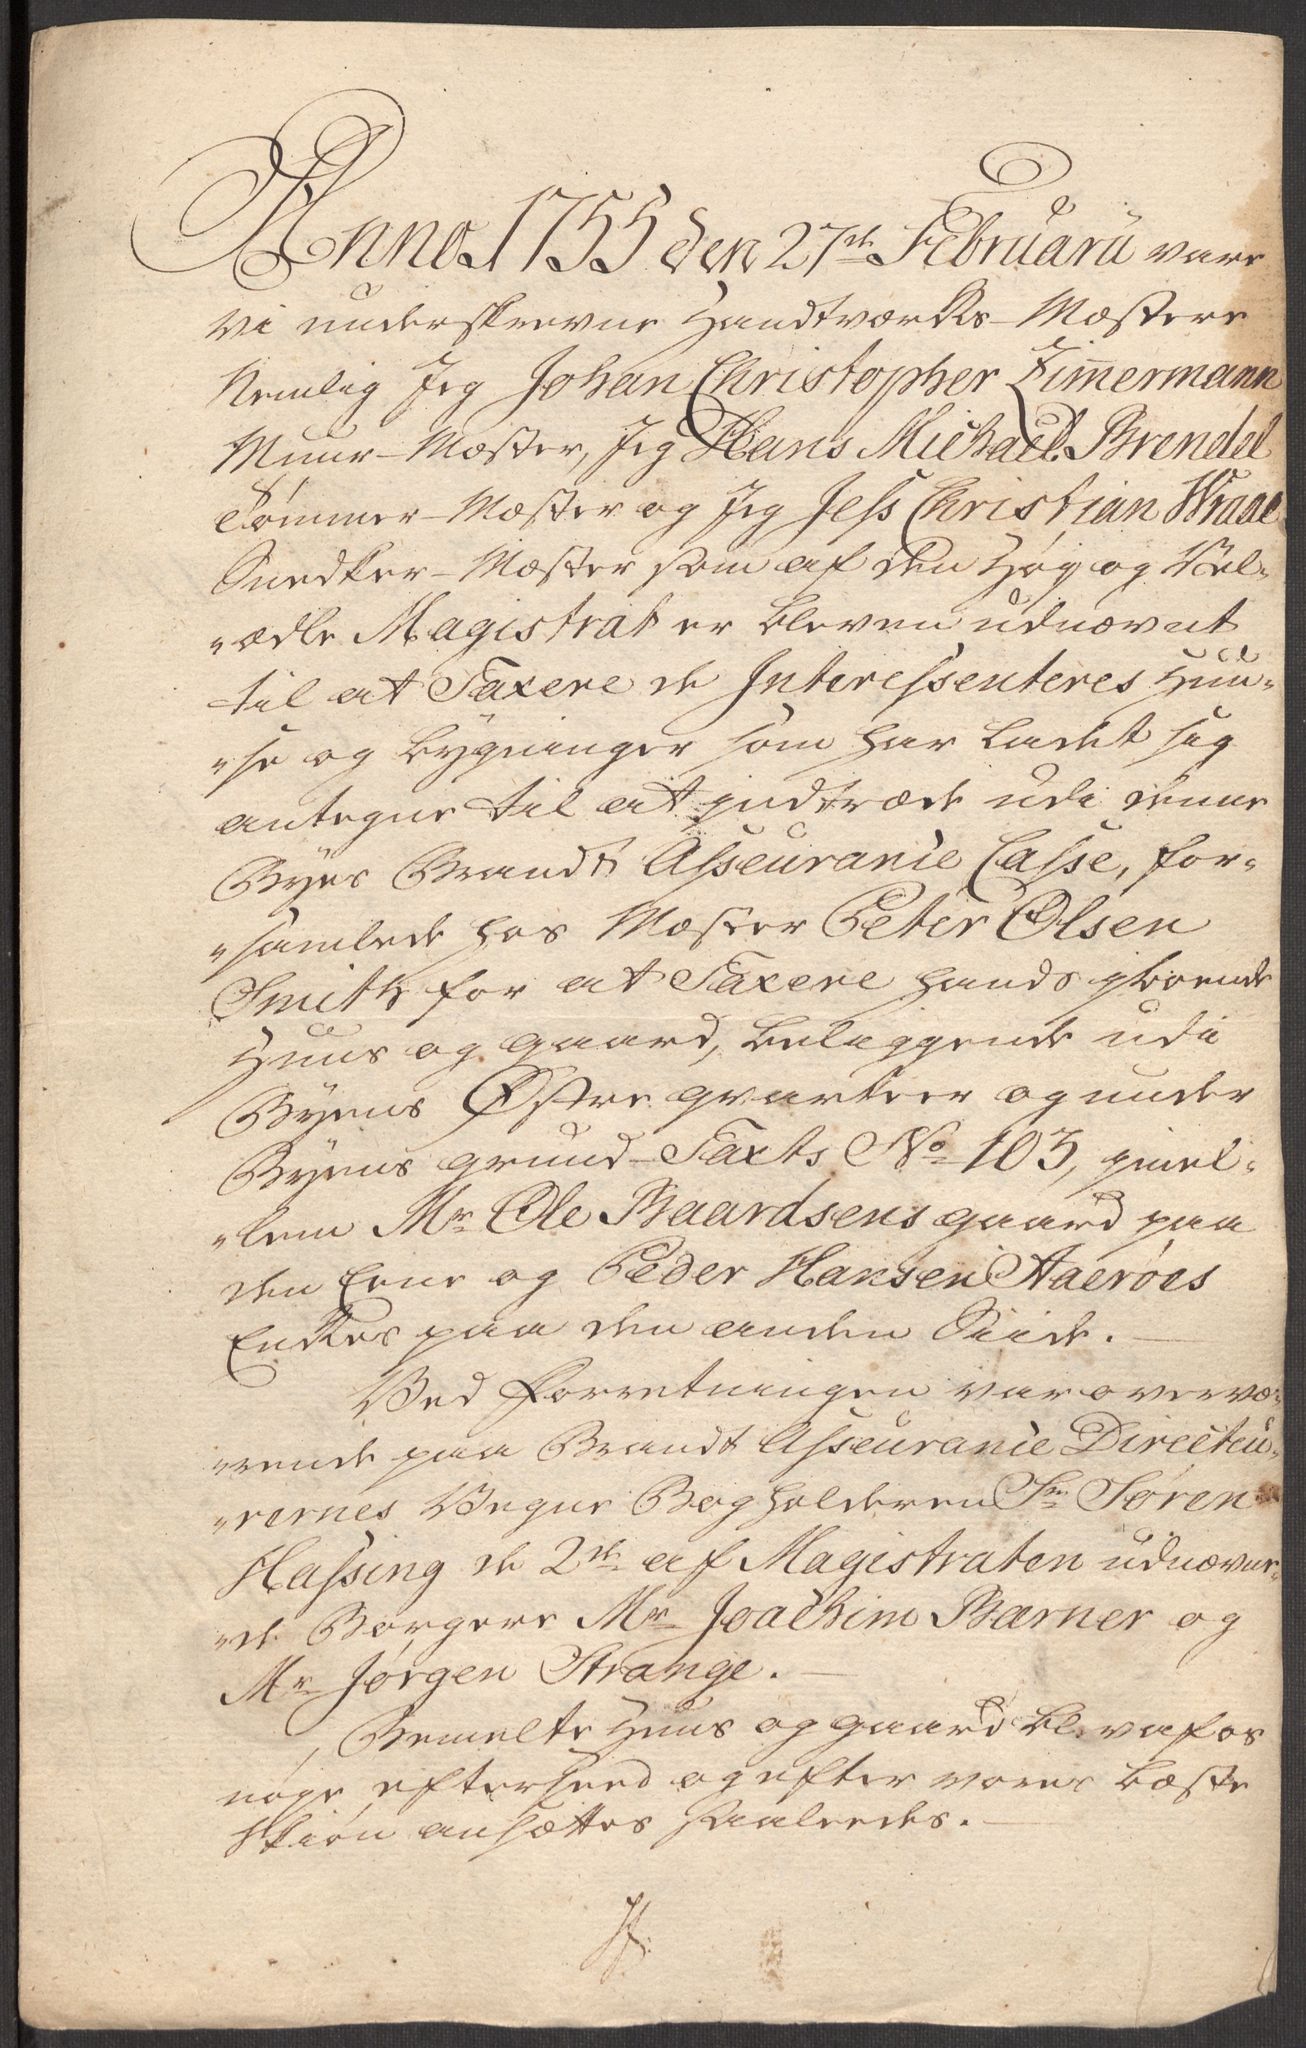 Anno 1755 den 27de Februarii vare
vi underskrevne Handtværks-Mæstere
Nemlig Jeg Johan Christopher Zim̅ermann
Muur-Mæster, Jeg Hans Michael Brendel
Tømmer-Mæster og Jeg Jess Christian Wraae
Snedker-Mæster som af den Høy og Vel„
„ædle Magistrat er bleven udnævnt
til at Taxere de Interessenteres Huu„
„se og bygninger som har ladet sig
antegne til at indtræde udi denne
Byes Brandt Asseurance Casse, for„
„samlede hos Mæster Peter Olsen
Smith for at Taxere hands iboende
Huus og gaard, beliggende udi
Byens Østre qvarteer og under
Byens grund-Taxts No 103, imel„
„lem Mr Ole Baardsens gaard paa
den Eene og Peder Hansen Aaerøes
Enkes paa den anden Siide.
Ved Forretningen var overvæ„
„rende paa Brandt Asseurance Directeu„
„rernes Vegne Bogholderen Sr Søren
Hassing de 2de af Magistraten udnævn„
„de Borgere Mr Joachim Barner og
Mr Jørgen Strange.
Bemelte Huus og gaard blev af os
nøye efterseed og efter vores bæste
Skiøn ansættes saaleedes.